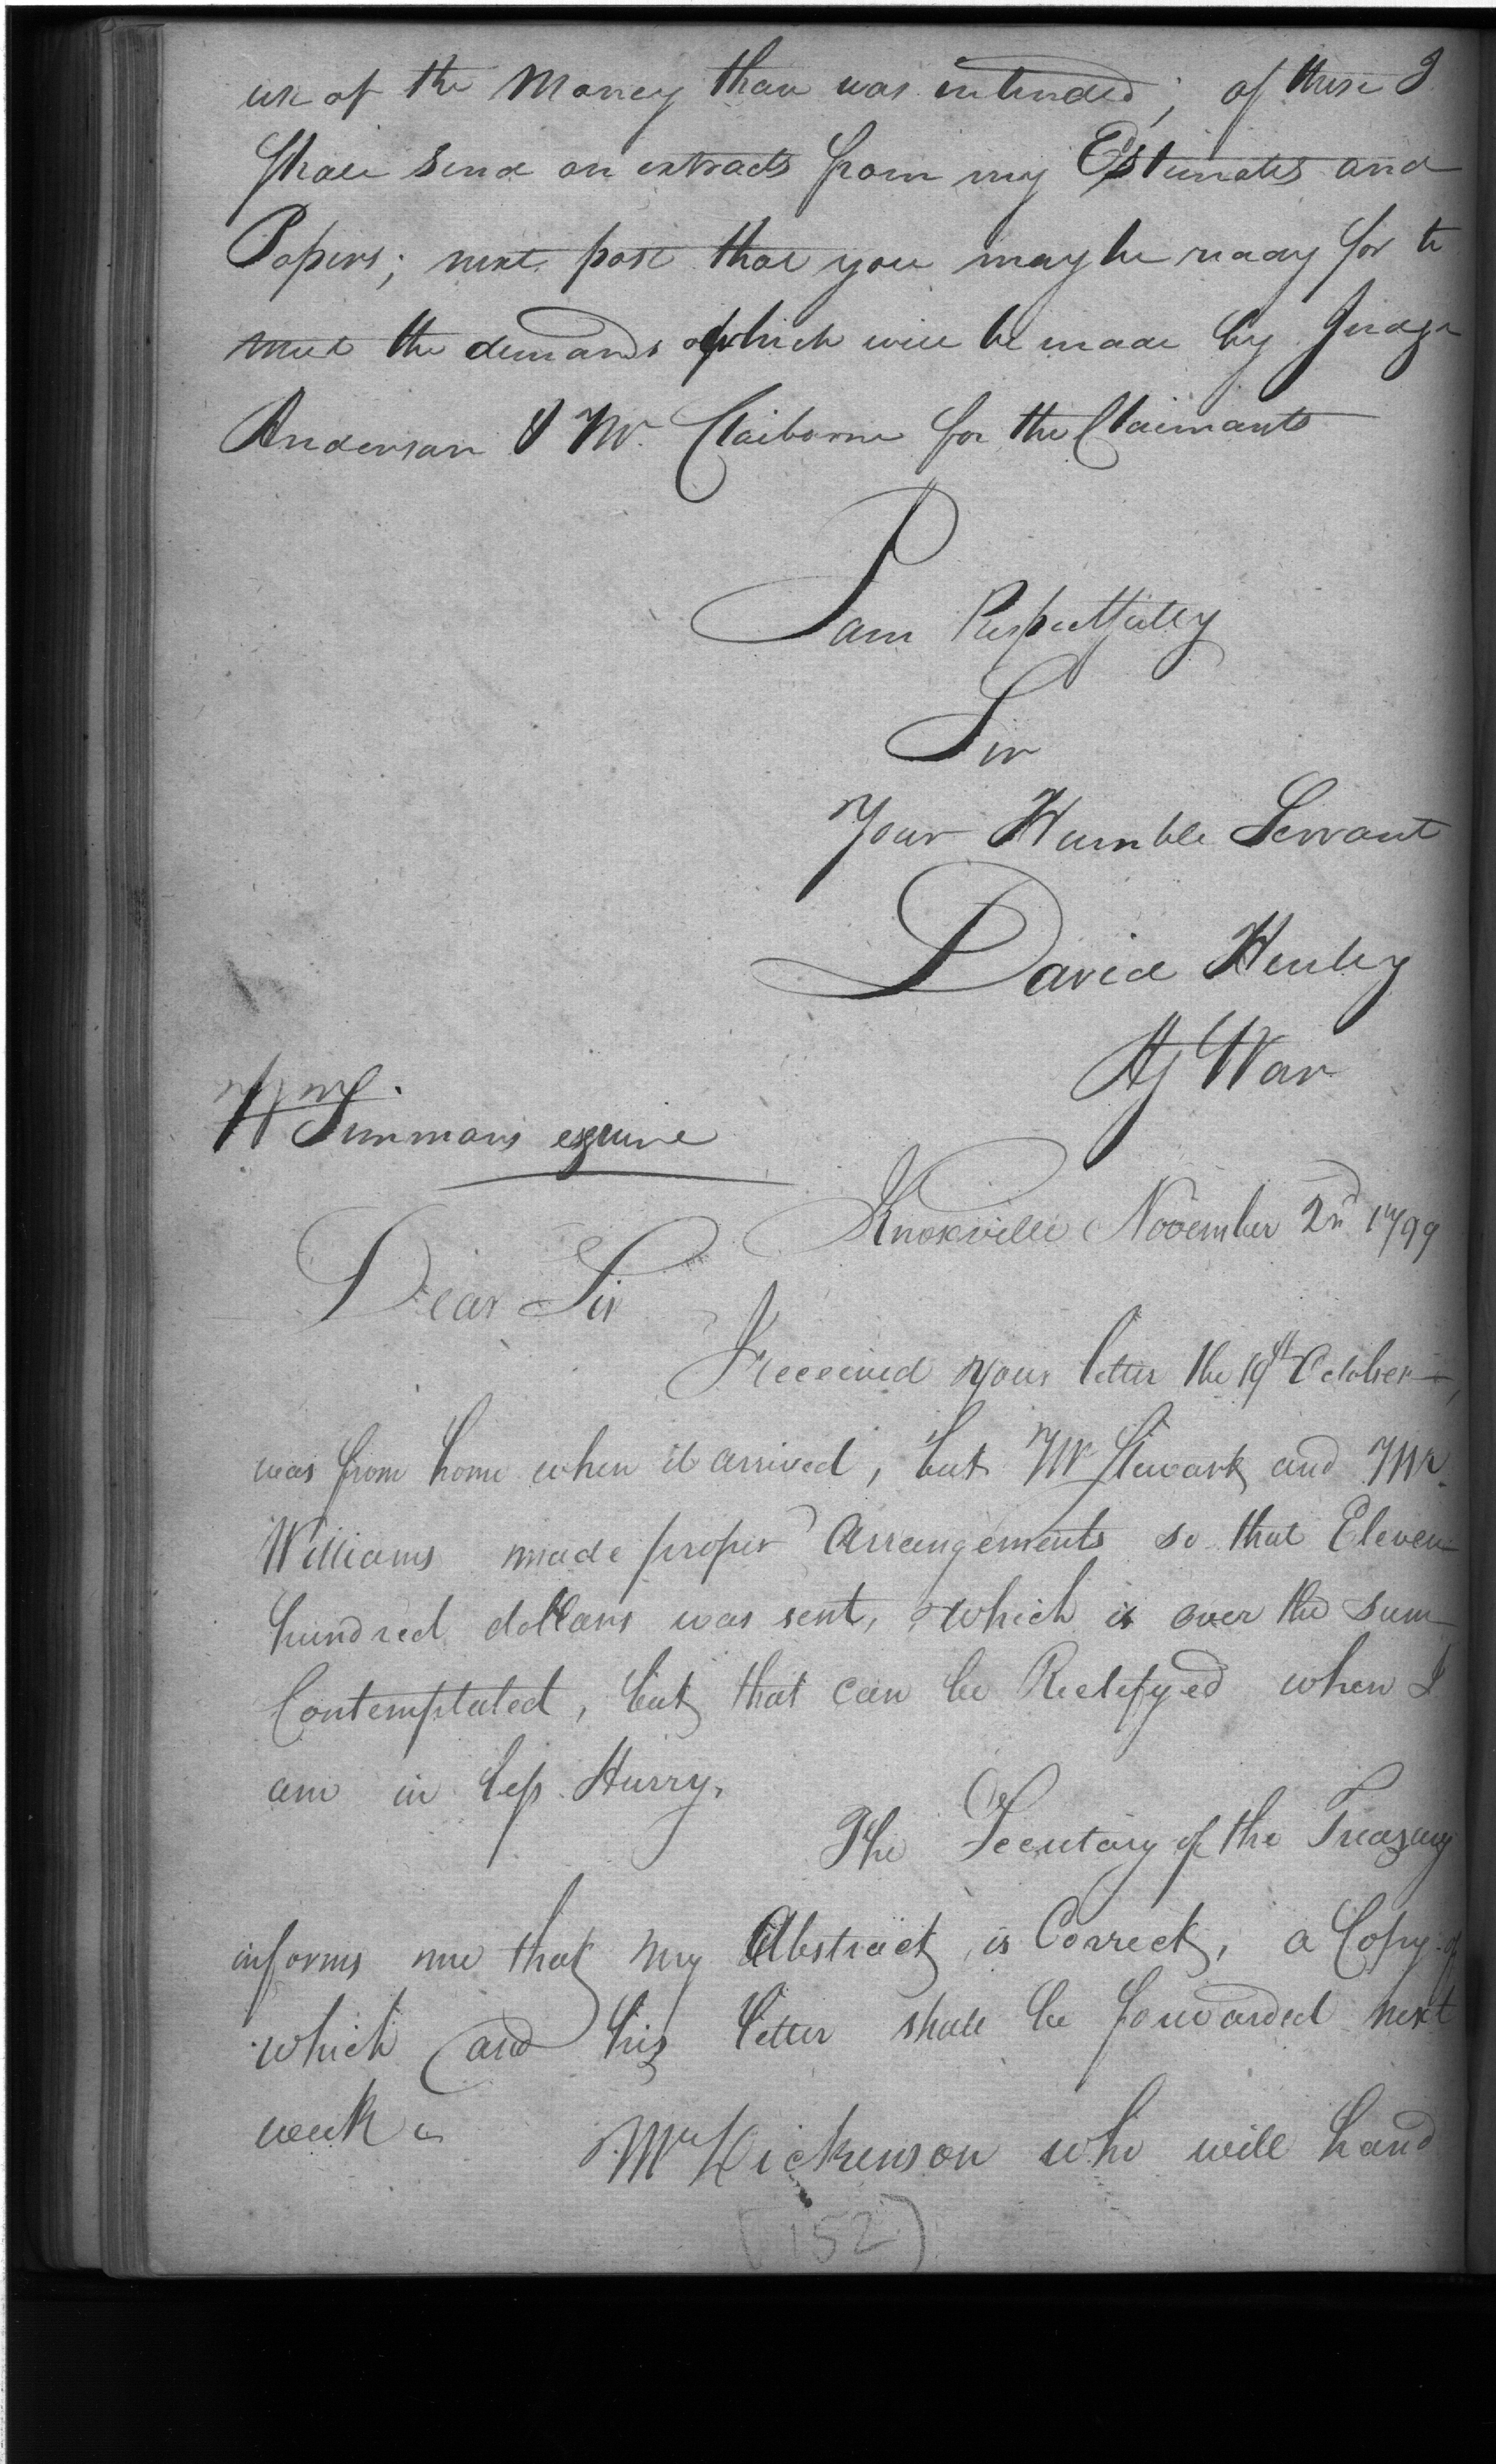 use of the Money than was intended; of these I
shall send on extracts from my Estimates and
Papers; next post that you may be ready for to
meet the demands which will be made by Judge
Anderson & Mr. Claiborne for the Claimants
I am Respectfully
Sir
Your Humble Servant
David Henley
Ag War
Wm Simmons esquire
Knoxville November 2nd 1799
Dear Sir
I received your letter the 19th October
was from home when it arrived, but Mr Stewart and Mr.
Williams made proper Arrangements so that Eleven
hundred dollars was sent, which is over the sum
Contemplated, but that can be Rectifyed when I
am in less Hurry,
The Secretary of the Treasury
informs me that my Abstract is Correct, a Copy of
which and his letter shall be forwarded next
week
Mr Dickenson who will hand
[152]